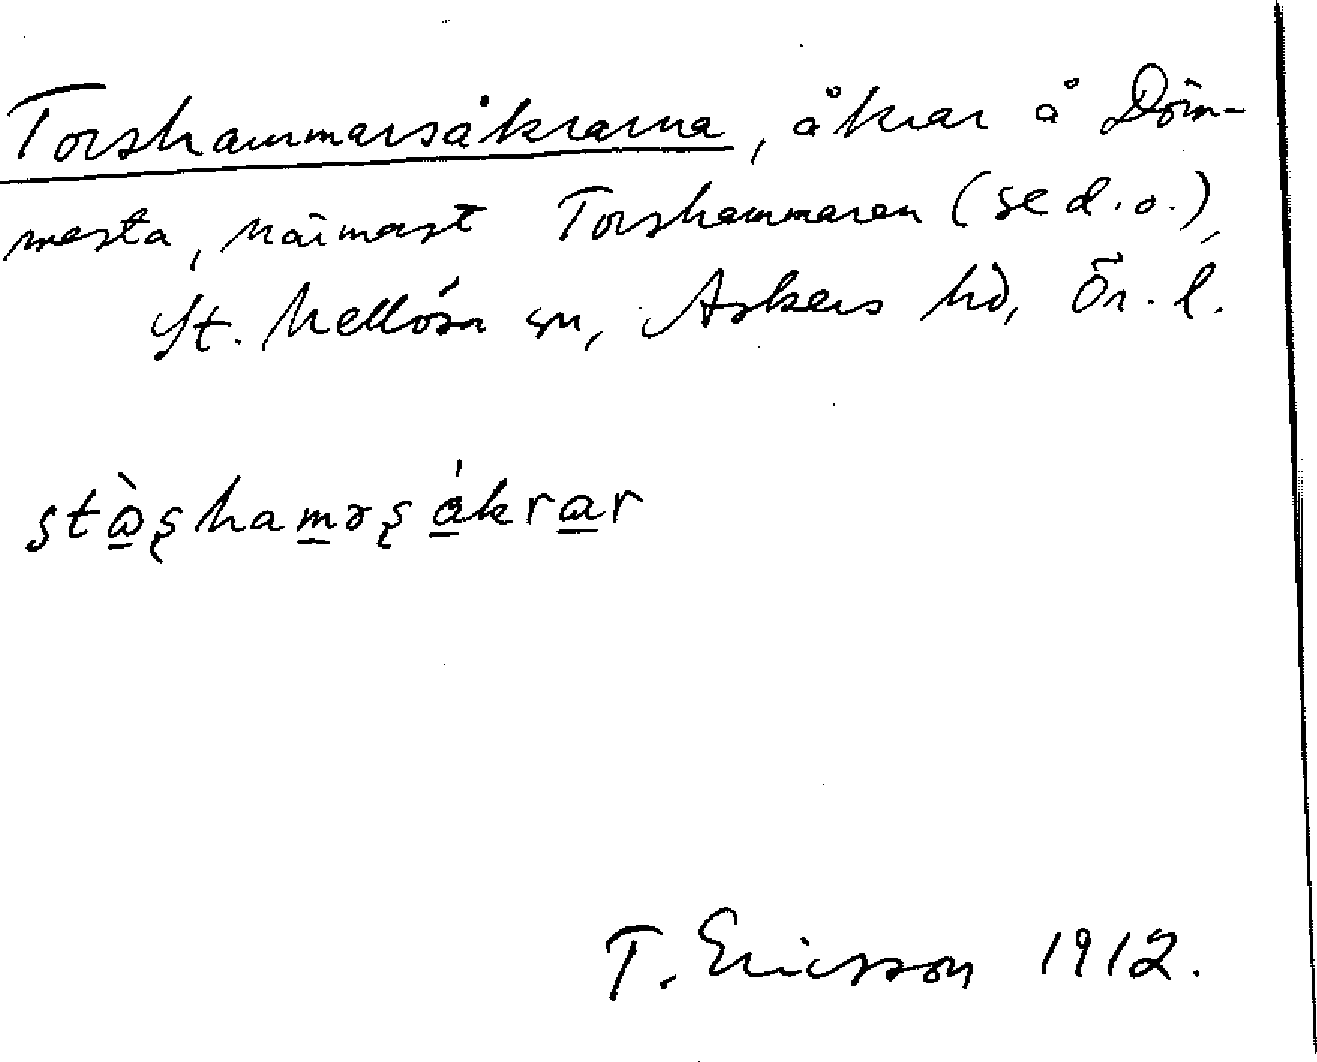 Torshammarsåkrarna, åkrar å Döm-
mesta, närmast Torshammaren (se d. o.),
St. Mellösa sn, Askers hd, Ör. l.
T. Ericsson 1912.